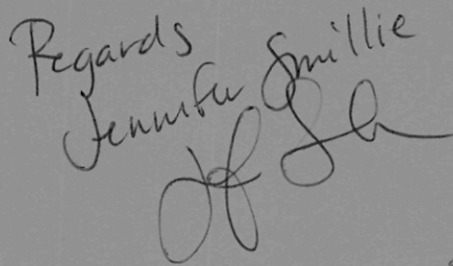 Regards
Jennifer Smillie